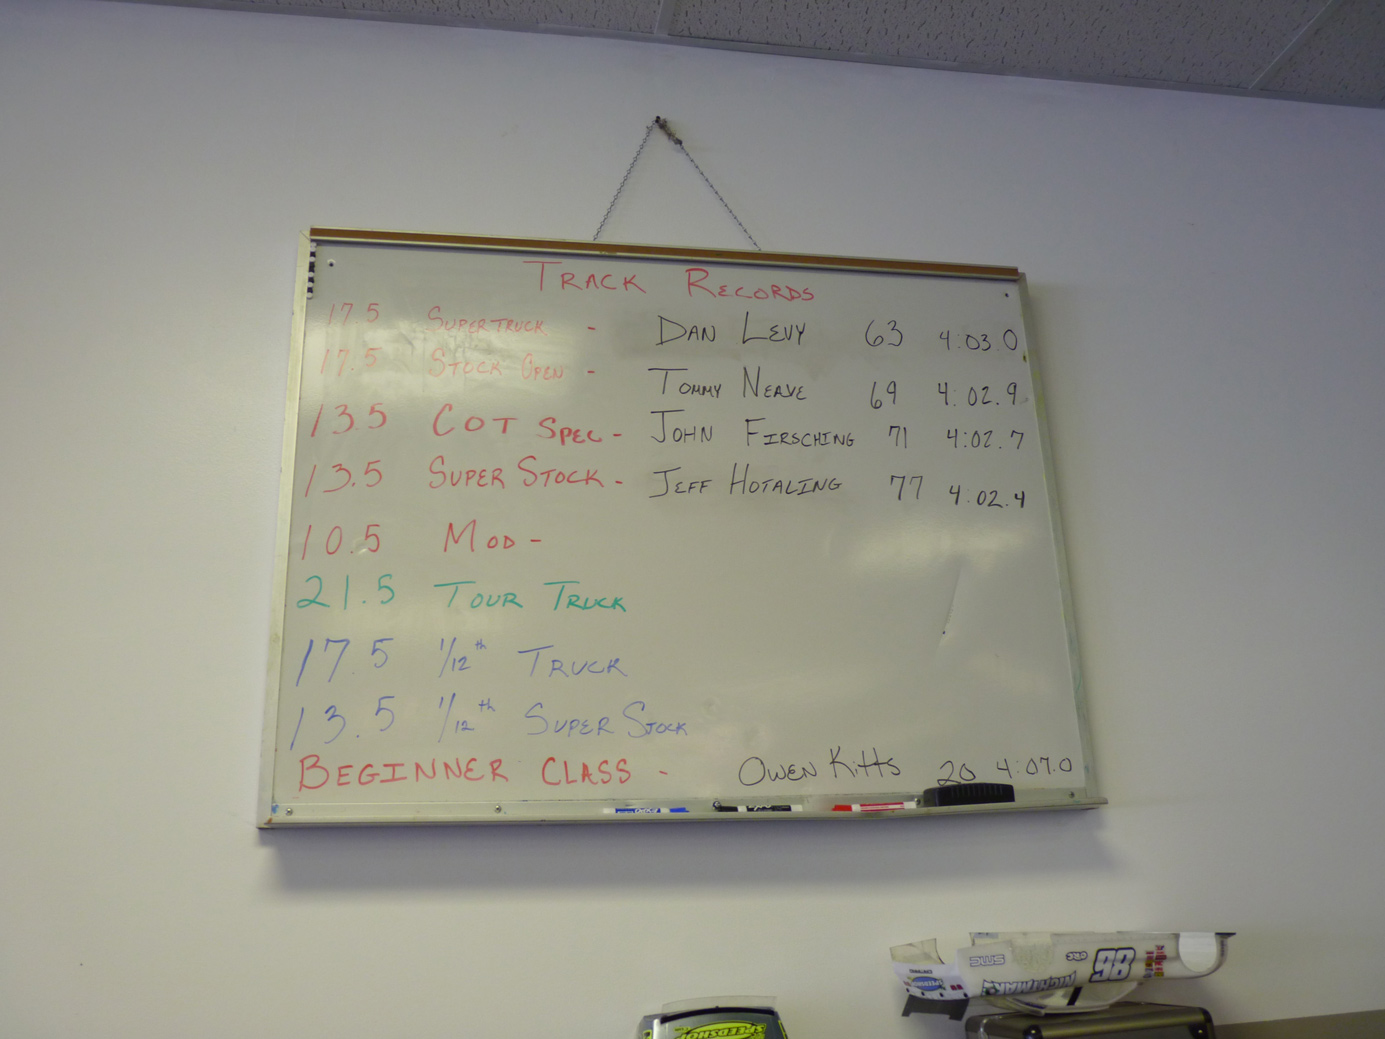 TRACK RECORDS
17.5 SUPERTRUCK - DAN LEVY 63 4:03.0
17.5 STOCK OPEN - TOMMY NEAVE 69 4:02.9
13.5 COT SPEC - JOHN FIRSCHING 71 4:02.7
13.5 SUPER STOCK - JEFF HOTALING 77 4:02.4
10.5 MOD -
21.5 TOUR TRUCK
17.5 1/12th TRUCK
13.5 1/12th SUPER STOCK
BEGINNER CLASS - OWEN KITTS 20 4:07.0
SMC
ORC
98
SPEEDSHOP